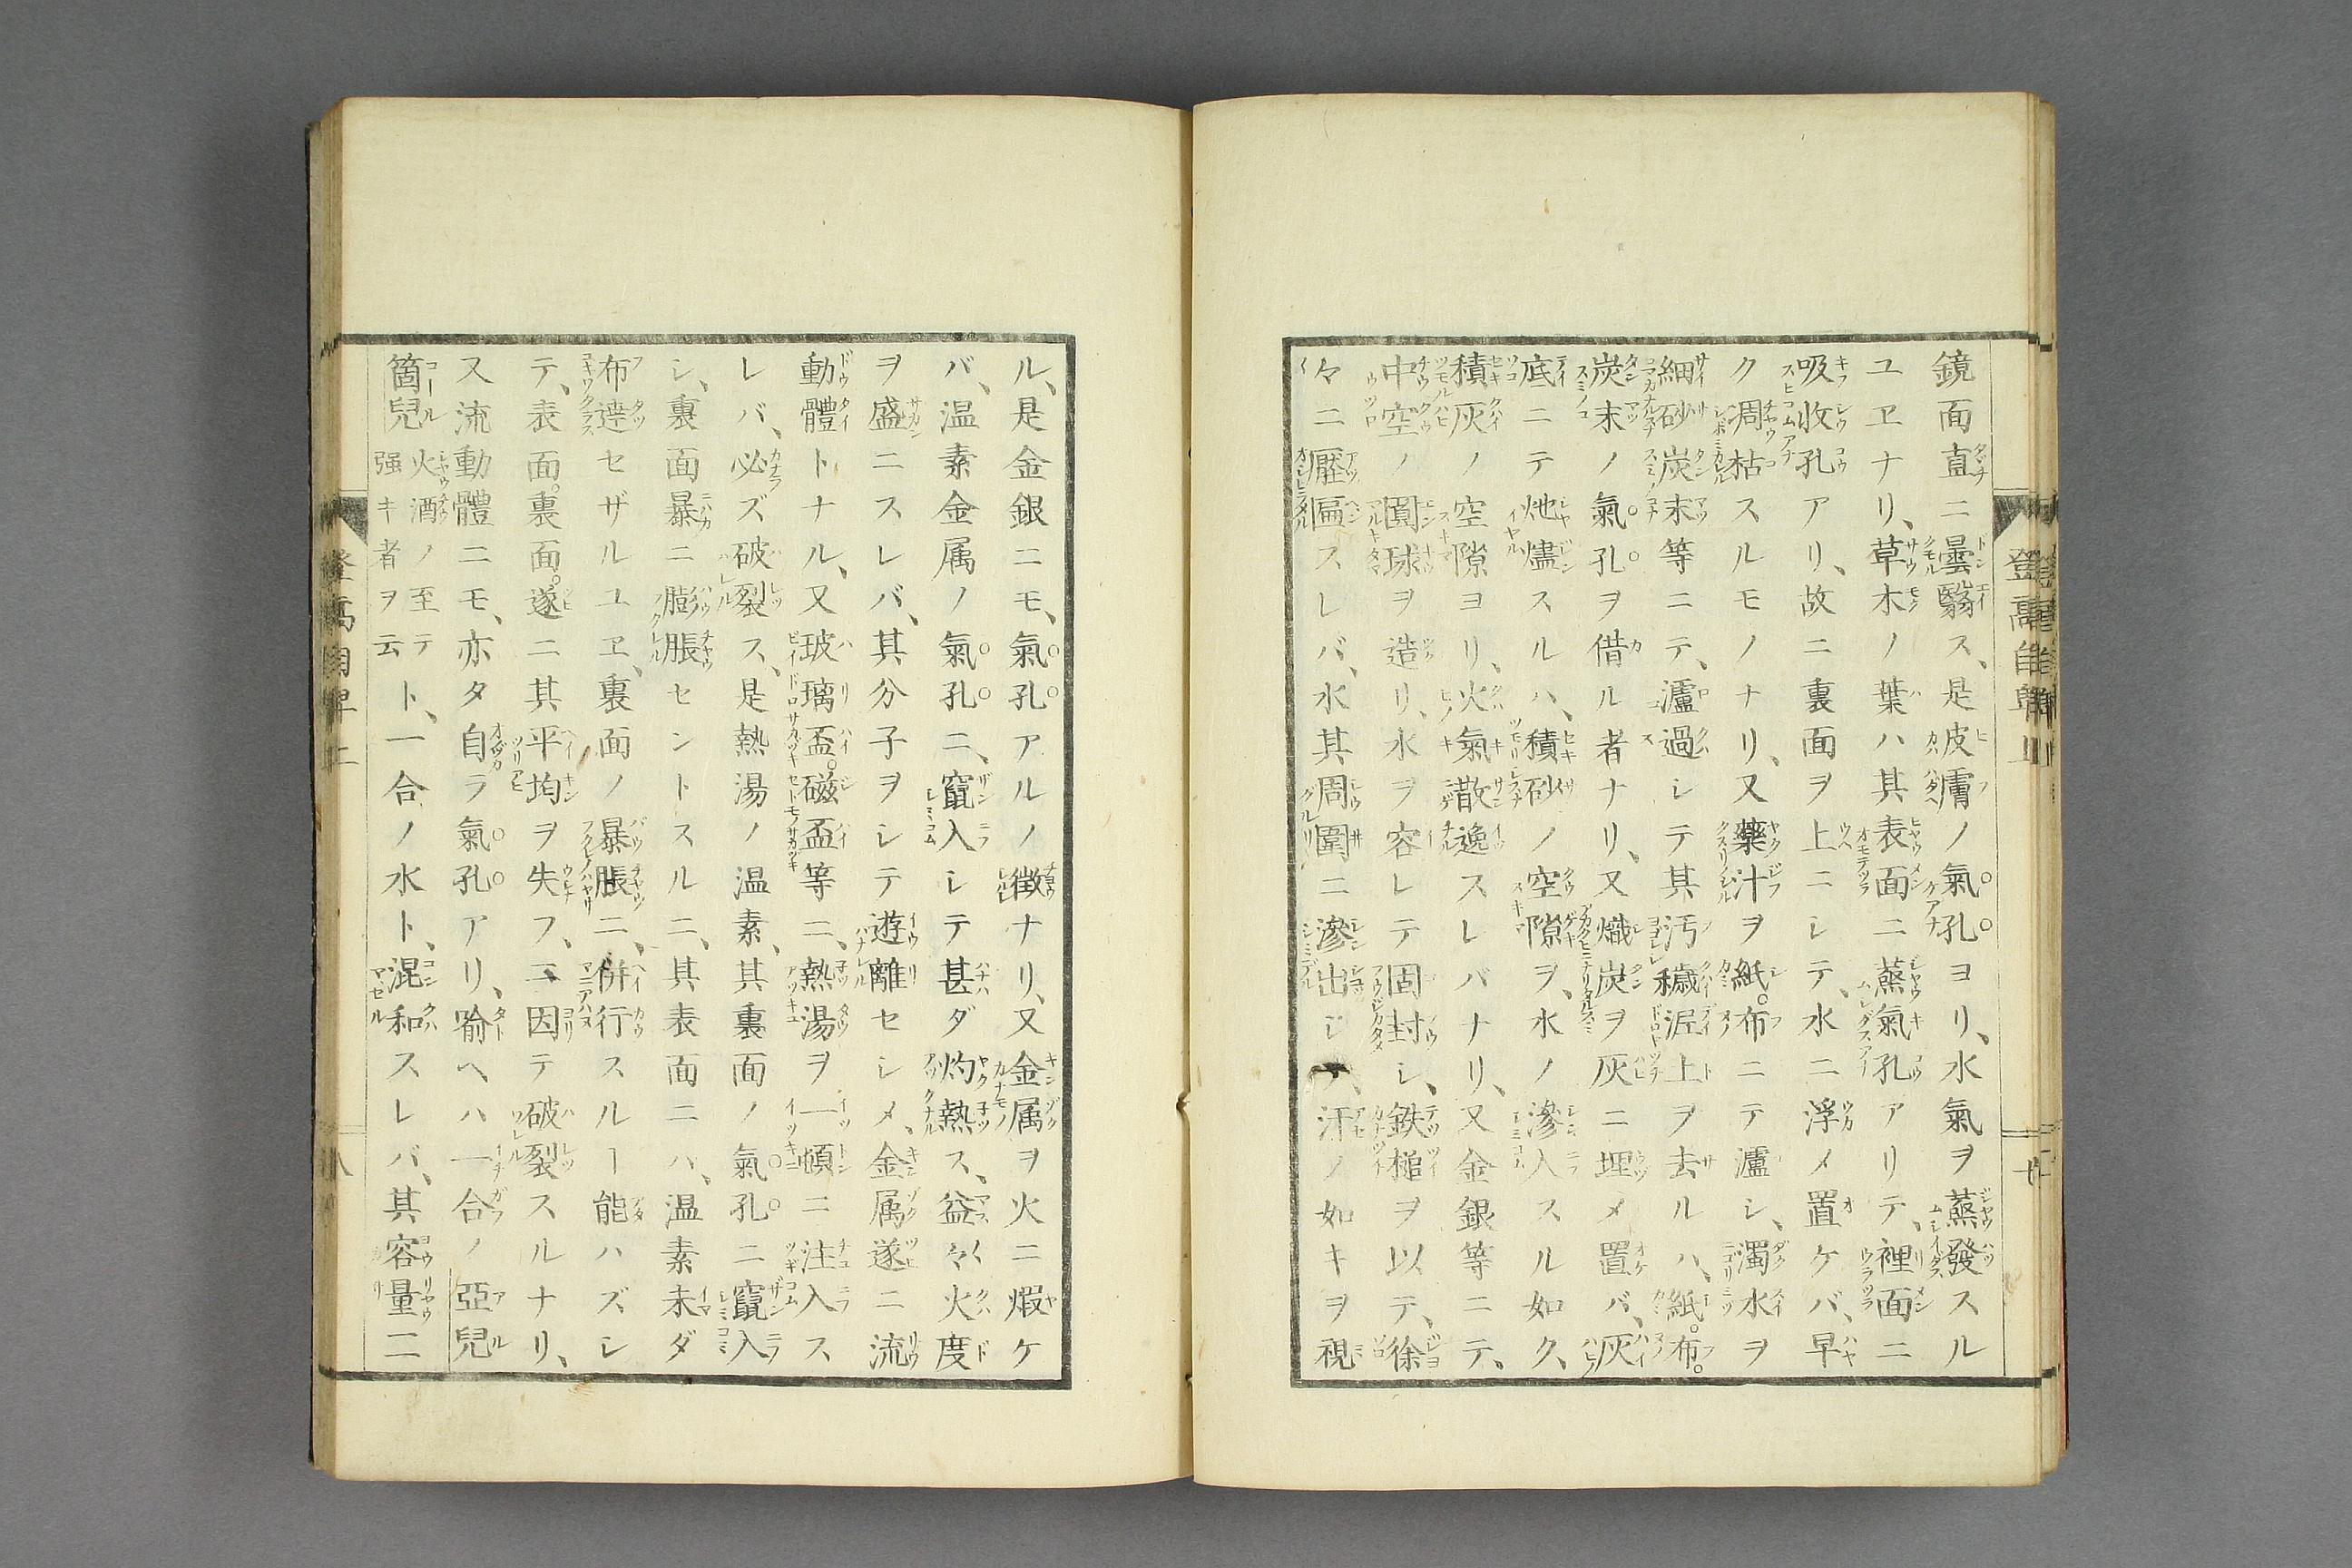 鏡面直ニ曇翳ス、是皮膚ノ氣孔ヨリ、水氣ヲ蒸發スル
ユヱナリ、草木ノ葉ハ其表面ニ蒸氣孔アリテ、裡面ニ
吸收孔アリ、故ニ裏面ヲ上ニシテ、水ニ浮メ置ケバ、早
ク凋枯スルモノナリ、又藥汁ヲ紙。布ニテ瀘シ、濁水ヲ
細砂炭末等ニテ、瀘過シテ其汚穢泥土ヲ去ルハ、紙。布。
炭末ノ氣孔ヲ借ル者ナリ、又熾炭ヲ灰ニ埋メ置バ、灰
底ニテ灺燼スルハ、積砂ノ空隙ヲ、水ノ滲入スル如ク、
積灰ノ空隙ヨリ、火氣散逸スレバナリ、又金銀等ニテ、
中空ノ圓球ヲ造リ、水ヲ容レテ固封シ、鉄槌ヲ以テ、徐
々ニ壓匾スレバ、水其周圍ニ滲出シ、汗ノ如キヲ視
登高自卑 上
ル、是金銀ニモ、氣孔アルノ徴ナリ、又金属ヲ火ニ煆ケ
バ、温素金属ノ氣孔ニ、竄入シテ甚ダ灼熱ス、益々火度
ヲ盛ニスレバ、其分子ヲシテ遊離セシメ、金属遂ニ流
動體トナル、又玻璃盃。磁盃等ニ、熱湯ヲ一頓ニ注入ス
レバ、必ズ破裂ス、是熱湯ノ温素、其裏面ノ氣孔ニ竄入
シ、裏面暴ニ膨脹セントスルニ、其表面ニハ、温素未ダ
布達セザルユヱ、裏面ノ暴脹ニ、併行スルヿ能ハズシ
テ、表面。裏面。遂ニ其平均ヲ失フ、因テ破裂スルナリ、
又流動體ニモ、亦タ自ラ氣孔アリ、喻ヘハ一合ノ亞兒
箇兒 火酒ノ至テ强キ者ヲ云 ト、一合ノ水ト、混和スレバ、其容量二
登高自卑 上
八